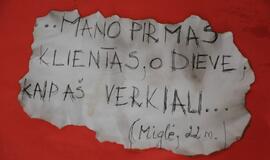 ...MANO PIRMAS
KLIENTAS, O DIEVE,
KAIP AŠ VERKIAU...
(Miglė, 22 m.)